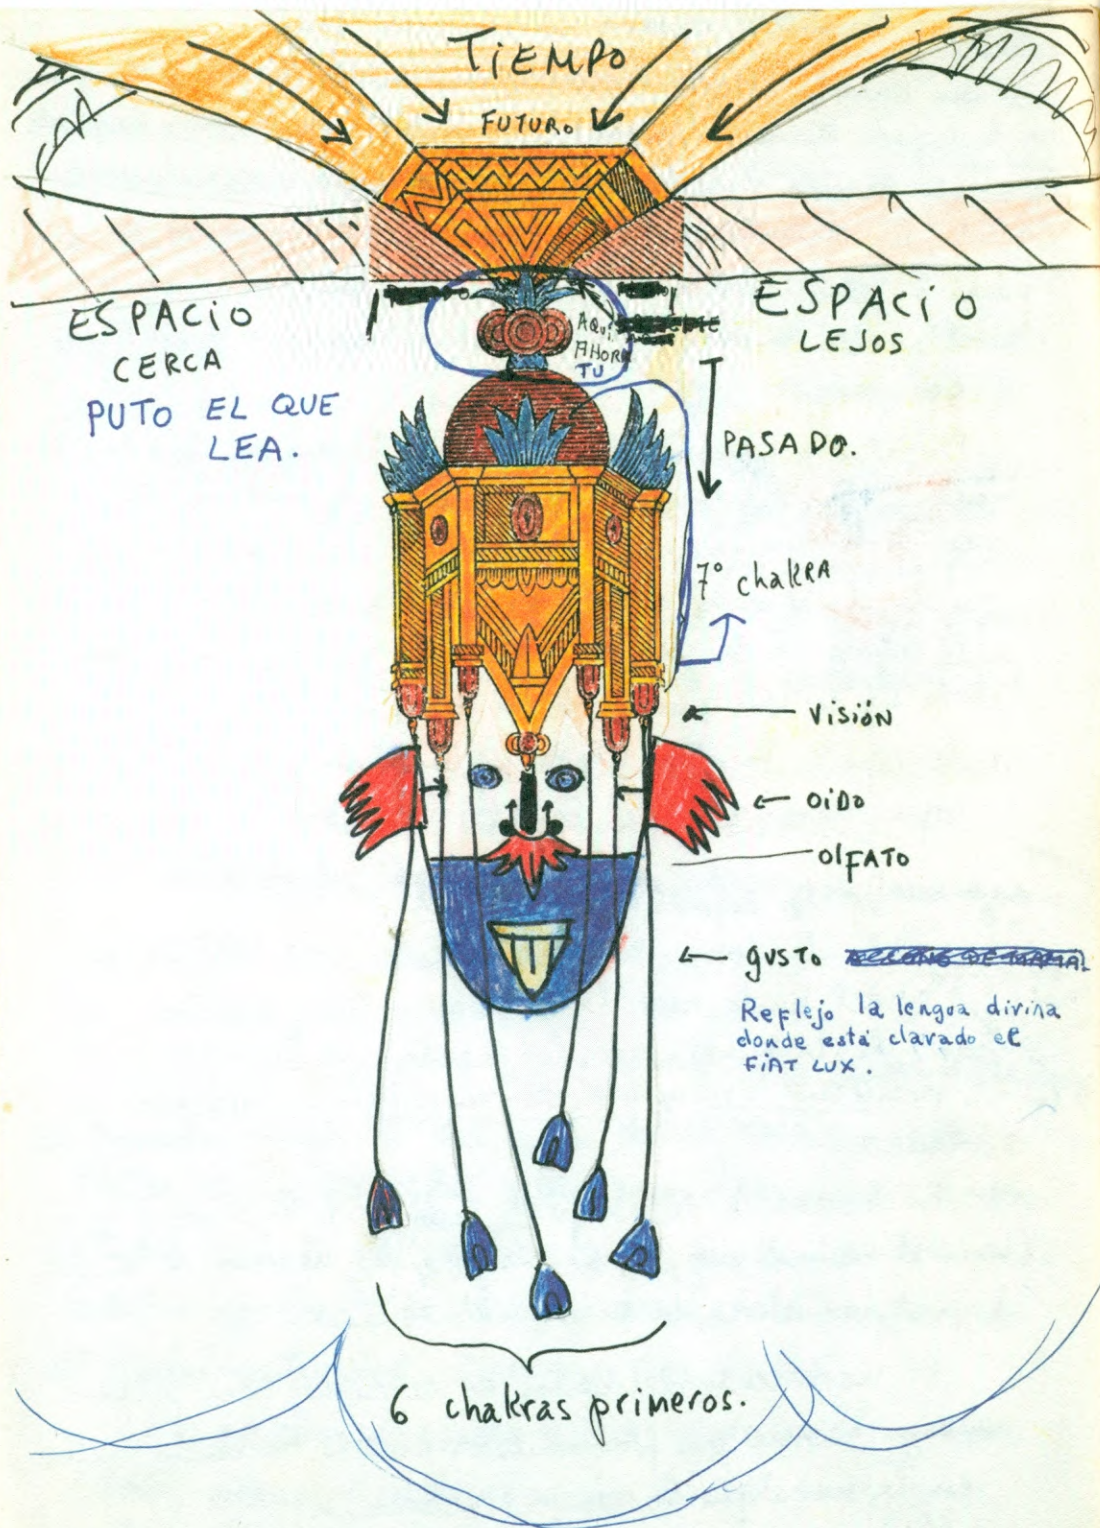 TiEMPO
FUTURO
ESPACiO
CERCA
PUTO EL QUE
LEA.
AQUí
AHORA
TU
ESPACiO
LEJOS
PASADO.
7° chakRA
VisióN
OiDO
OlFATO
gUSTO
Reflejo la lengua divina
donde está clavado el
FiAT LUX.
6 chakras primeros.